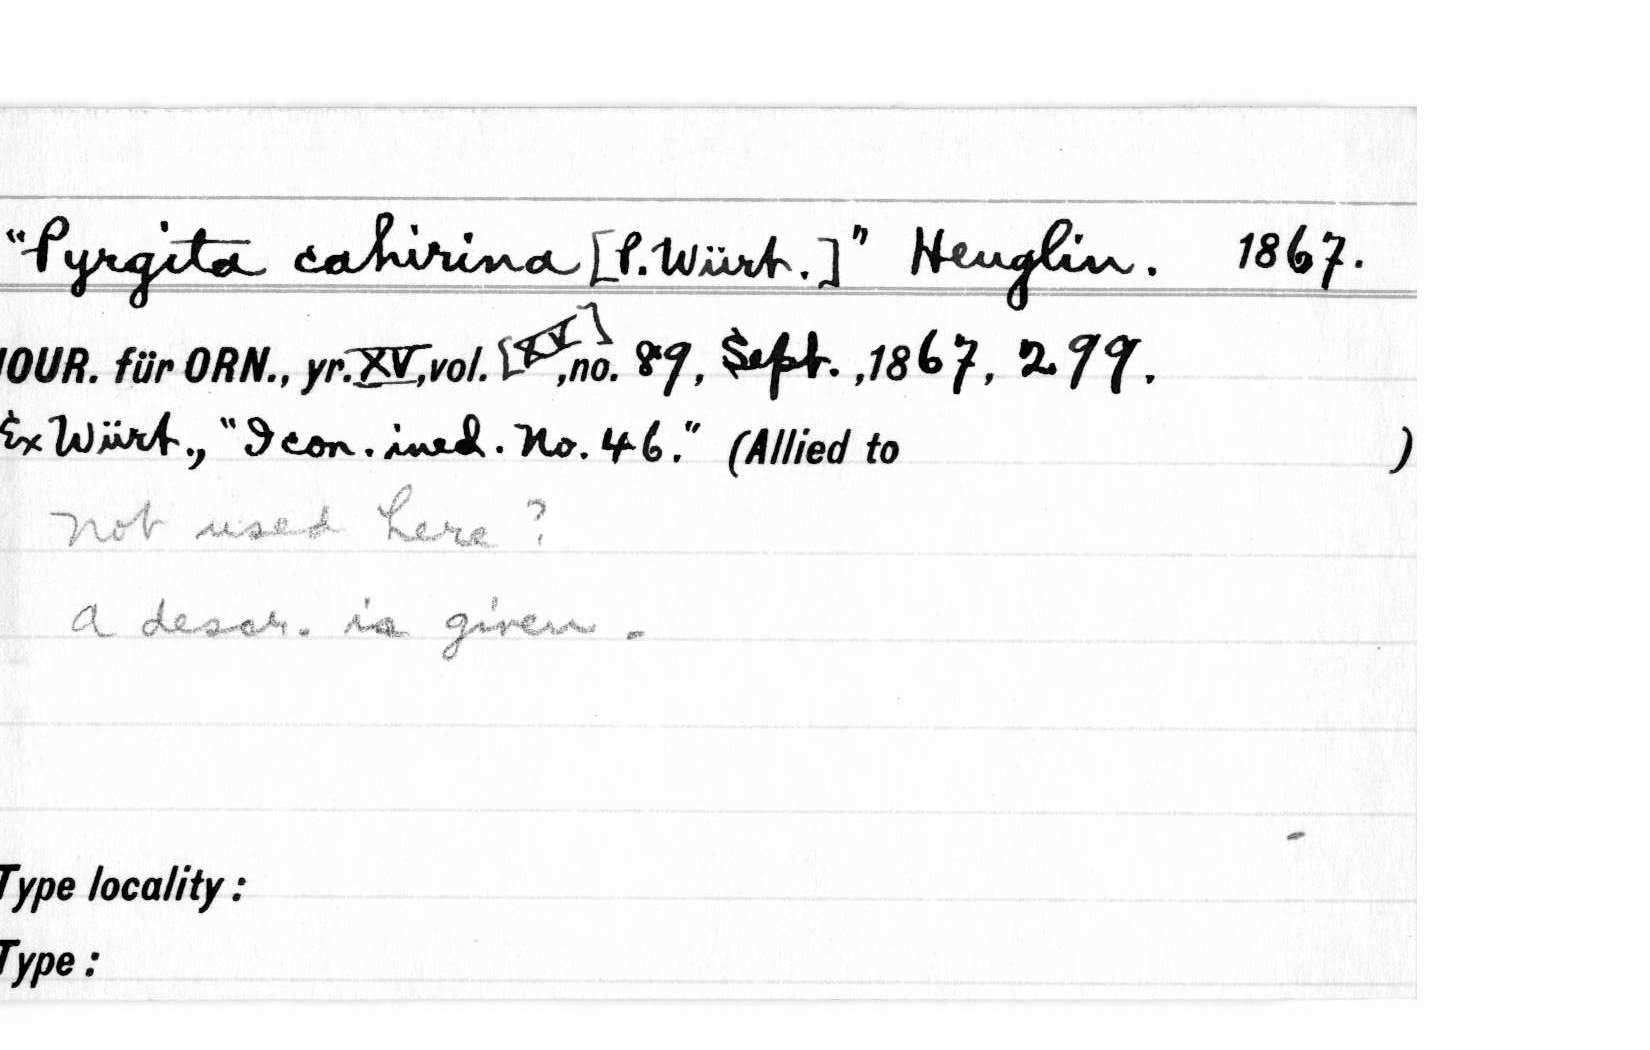 "Pyrgita cahirina [P. Würt.]" Heuglin. 1867.
JOUR. für ORN., yr. XV, vol. [XV], no. 89, Sept., 1867, 299.
Ex Würt., "Icon. ined. No. 46." (Allied to )
not used here?
a descr. is given.
Type locality:
Type: